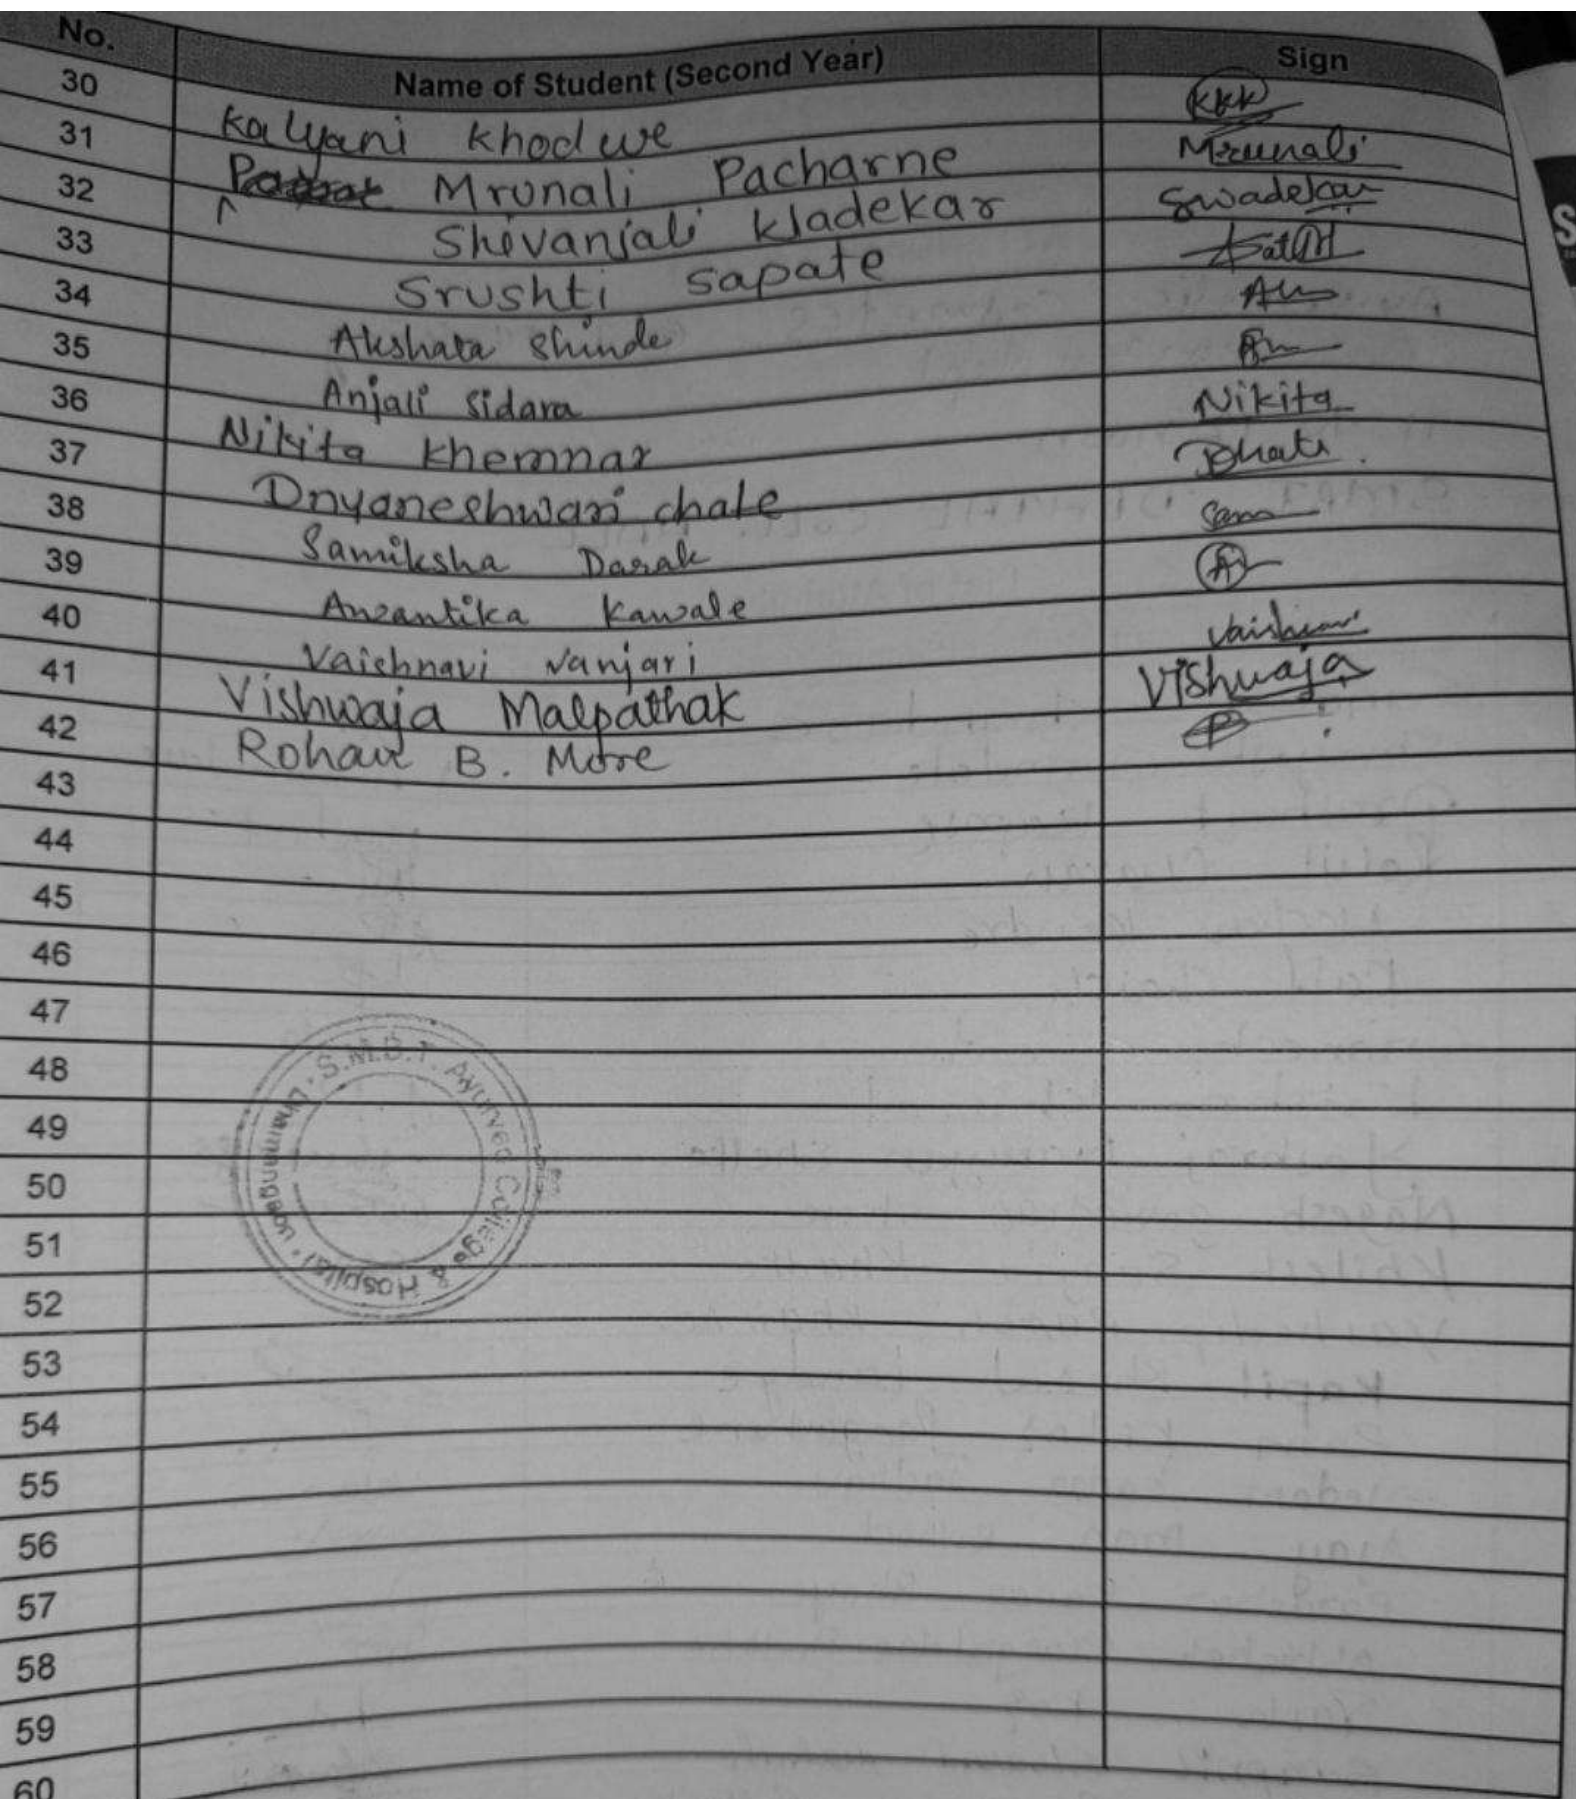 No. Name of Student (Second Year) Sign
30 Kalyani Khodwe KKK
31 Mrunali Pacharne Mrunali
32 Shivanjali Wadekar Swadekar
33 Srushti Sapate
34 Akshata Shinde
35 Anjali Sidara
36 Nikita Khemnar Nikita
37 Dnyaneshwari chate
38 Samiksha Darak Sam
39 Awantika Kawale
40 Vaishnavi Vanjari
41 Vishwaja Malpathak Vishwaja
42 Rohan B. More
43
44
45
46
47
48
49
50
51
52
53
54
55
56
57
58
59
60
S.M.B.T. Ayurved College & Hospital
S